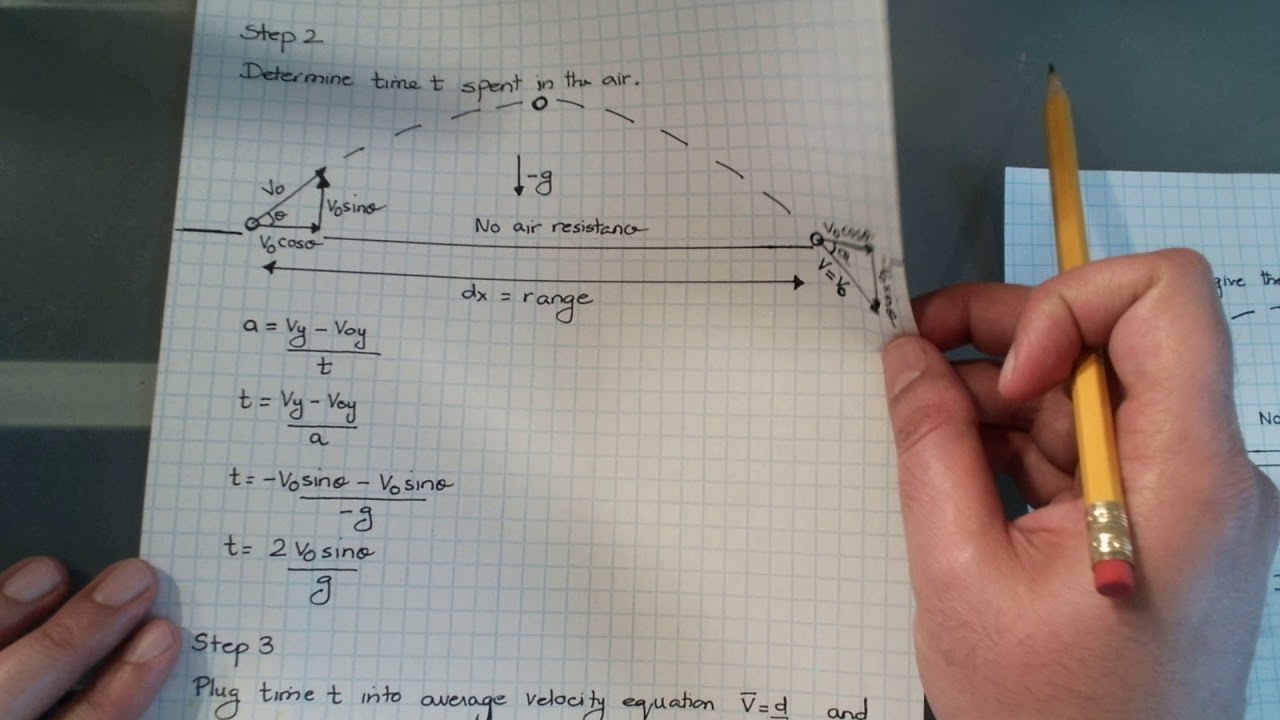 Step 2
Determine time t spent in the air.
-g
V₀
θ
V₀sinθ
V₀cosθ
No air resistance
V₀cosθ
θ
V=V₀
dx = range
a = Vy - Voy
t
t = Vy - Voy
a
t = -V₀sinθ - V₀sinθ
-g
t = 2V₀sinθ
g
Step 3
Plug time t into average velocity equation V̅=d and
give the
No